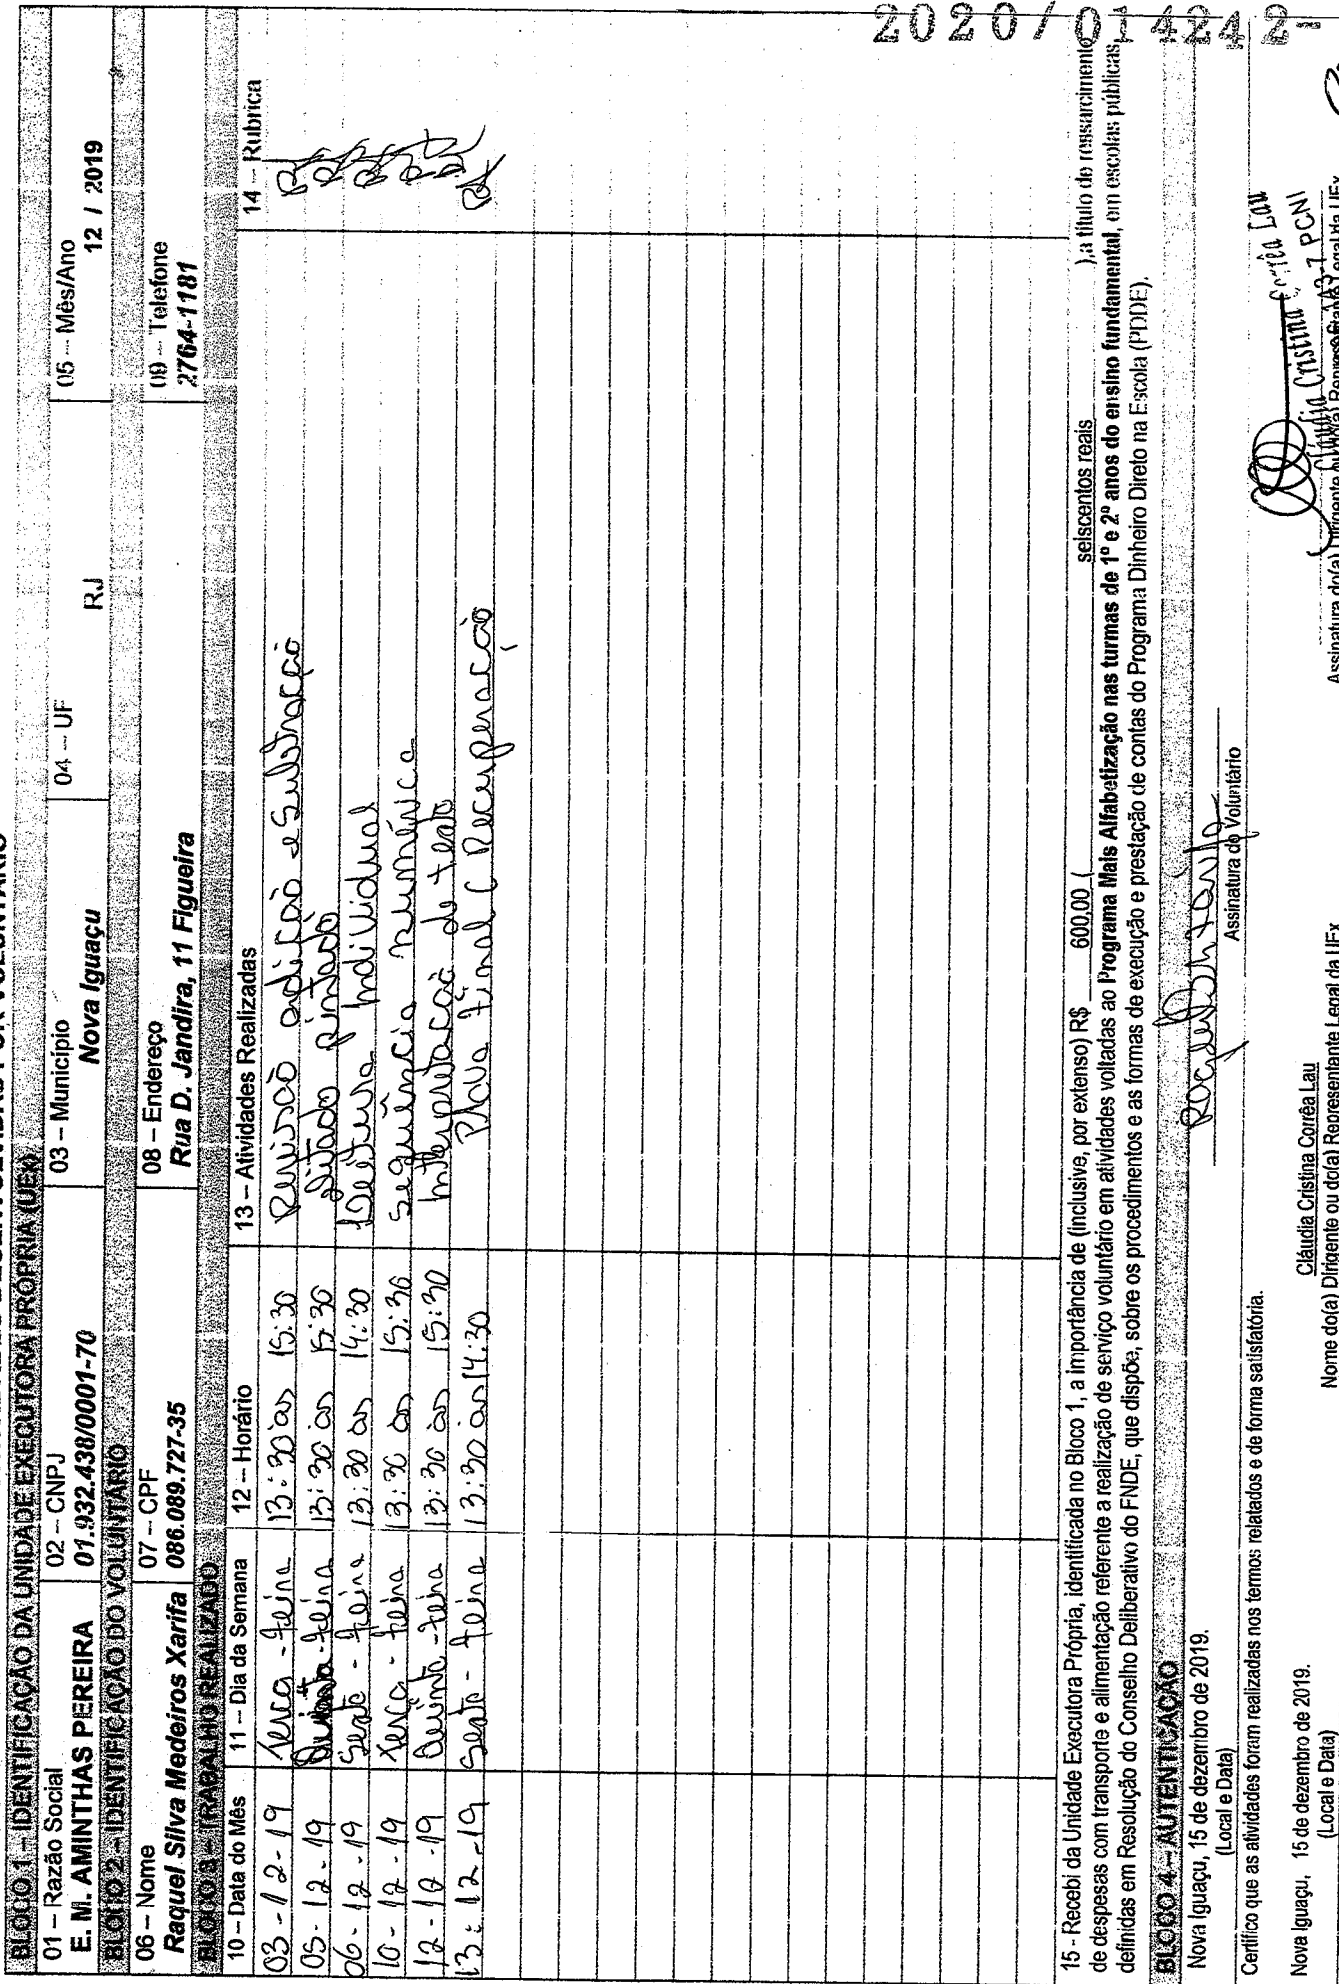 2020/014242-
BLOCO 1 – IDENTIFICAÇÃO DA UNIDADE EXECUTORA PRÓPRIA (UEX)
01 – Razão Social
E. M. AMINTHAS PEREIRA
02 – CNPJ
01.932.438/0001-70
03 – Município
Nova Iguaçu
04 – UF
RJ
05 – Mês/Ano
12 / 2019
BLOCO 2 – IDENTIFICAÇÃO DO VOLUNTÁRIO
06 – Nome
Raquel Silva Medeiros Xarifa
07 – CPF
086.089.727-35
08 – Endereço
Rua D. Jandira, 11 Figueira
09 – Telefone
2764-1181
BLOCO 3 – TRABALHO REALIZADO
10 – Data do Mês 11 – Dia da Semana 12 – Horário 13 – Atividades Realizadas 14 – Rubrica
03-12-19 Terça-feira 13:30 às 15:30 Revisão adição e Subtração
05-12-19 Quinta-feira 13:30 às 15:30 ditado pintado
06-12-19 Sexta-feira 13:30 às 14:30 Leitura Individual
10-12-19 Terça-feira 13:30 às 15:30 Sequência numérica
12-12-19 Quinta-feira 13:30 às 15:30 Interpretação de texto
13-12-19 Sexta-feira 13:30 às 14:30 Prova Final C Recuperação
15 - Recebi da Unidade Executora Própria, identificada no Bloco 1, a importância de (inclusive, por extenso) R$ 600,00 ( seiscentos reais ),a título do ressarcimento
de despesas com transporte e alimentação referente a realização de serviço voluntário em atividades voltadas ao Programa Mais Alfabetização nas turmas de 1º e 2º anos do ensino fundamental, em escolas públicas,
definidas em Resolução do Conselho Deliberativo do FNDE, que dispõe, sobre os procedimentos e as formas de execução e prestação de contas do Programa Dinheiro Direto na Escola (PDDE).
BLOCO 4 – AUTENTICAÇÃO
Nova Iguaçu, 15 de dezembro de 2019.
(Local e Data)
Assinatura do Voluntário
Certifico que as atividades foram realizadas nos termos relatados e de forma satisfatória.
Nova Iguaçu, 15 de dezembro de 2019.
(Local e Data)
Cláudia Cristina Corrêa Lau
Nome do(a) Dirigente ou do(a) Representante Legal da UEx
Cláudia Cristina Corrêa Lau
Assinatura do(a) Dirigente ou do(a) Representante Legal da UEx